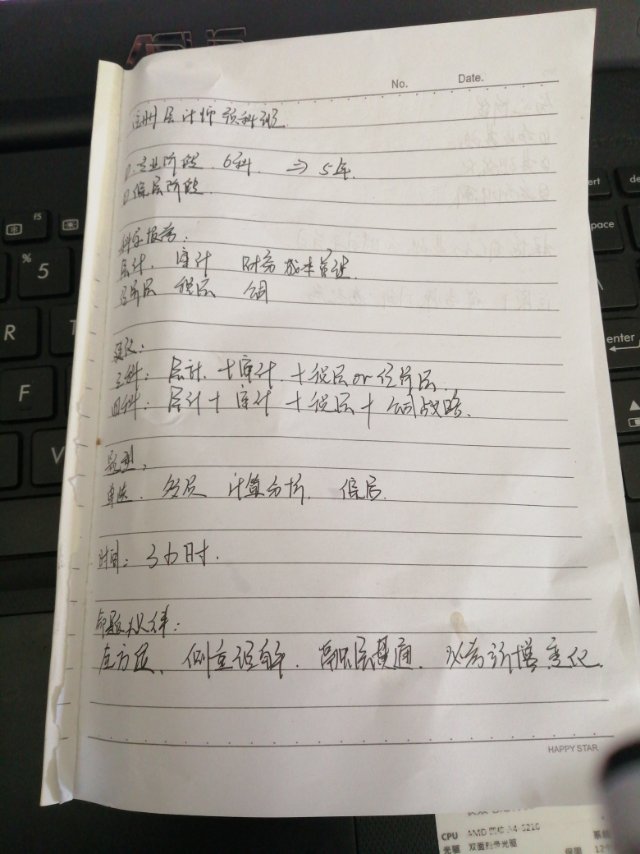 ASUS
No. Date.
注册会计师预科班
①专业阶段 6科 ⇒ 5年
②综合阶段
科目报考:
会计 审计 财务成本管理
经济法 税法
建议:
三科: 会计 + 审计 + 税法 or 经济法
四科: 会计 + 审计 + 税法 + 公司战略
题型:
单选 多选 计算分析 综合
时间: 3小时
命题规律:
全方位、侧重理解
HAPPY STAR
f5
f6
%
5
R
T
F
V
ert
delete
space
enter
CPU AMD
光驱 双面刻录光驱
保修